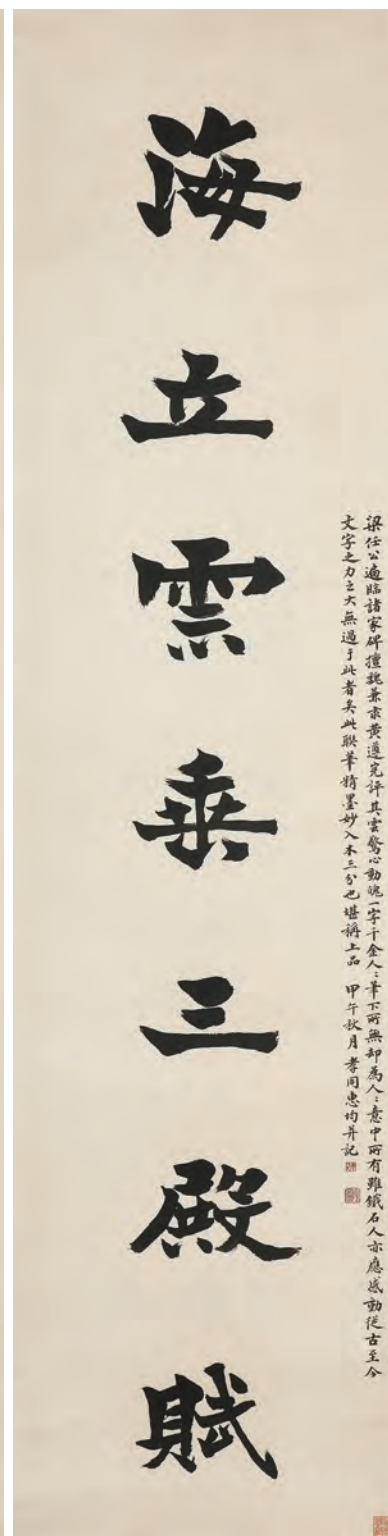 海立雲垂三殿賦
梁任公遍臨諸家碑擅魏兼隶黄遵宪評其雲驚心動魄一字千金人〻筆下所無却為人〻意中所有雖鐵石人亦應感動從古至今
文字之力之大無過于此者矣此联筆精墨妙入木三分也堪稱上品 甲午秋月孝同惠均并記